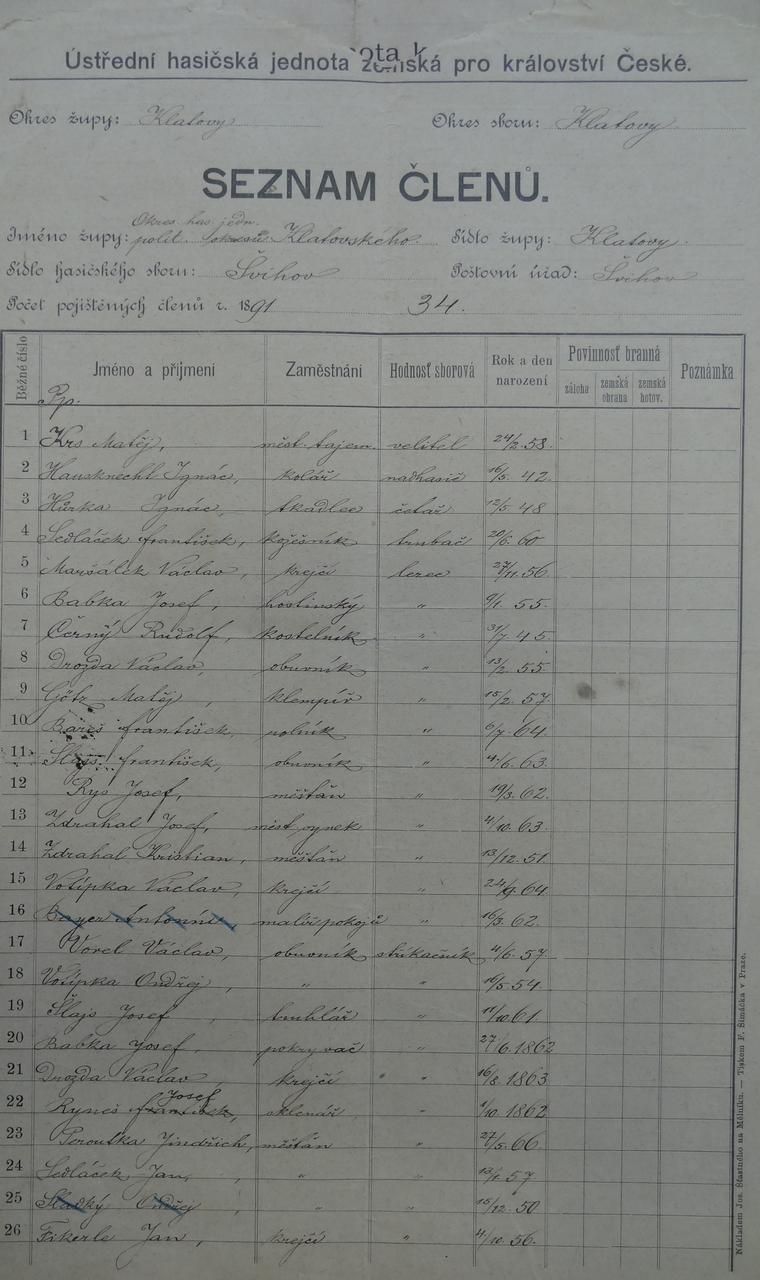 Ústřední hasičská jednota zemská pro království České.
Okres župy: Klatovy Okres sboru: Klatovy
SEZNAM ČLENŮ.
Okres. has. jedn.
Jméno župy: polit. okresů Klatovského Sídlo župy: Klatovy.
Sídlo hasičského sboru: Švihov Poštovní úřad: Švihov
Počet pojištěných členů r. 1891 34.
Běžné číslo Jméno a příjmení Zaměstnání Hodnosť sborová Rok a den narození Povinnosť branná Poznámka
záloha zemská obrana zemská hotov.
Pp.
1 Krs Matěj, měst. tajem. velitel 24/2. 58.
2 Hausknecht Ignác, kolář nadhasič 16/5. 42.
3 Hůrka Ignác, tkadlec četař 12/5. 48
4 Sedláček František, kožešník trubač 20/6. 60
5 Maršálek Václav, krejčí lezec 27/11. 56.
6 Babka Josef, hostinský " 9/1. 55.
7 Černý Rudolf, kostelník " 31/7. 45.
8 Drozda Václav, obuvník " 13/2. 55
9 Götz Matěj, klempíř " 15/2. 57.
10 Bareš František, rolník " 6/7. 64.
11 Šlajs František, obuvník " 4/6. 63.
12 Rys Josef, měšťan " 19/3. 62.
13 Zdrahal Josef, měst. " 4/10. 63.
14 Zdrahal Kristian, měšťan " 13/12. 51.
15 Votípka Václav, krejčí " 24/9. 64.
16 Bayer Antonín, malíř pokojů " 16/3. 62.
17 Vorel Václav, obuvník stříkačník 4/6. 57.
18 Votípka Ondřej, " " 16/5. 54.
19 Šlajs Josef, truhlář " 11/10. 61.
20 Babka Josef, pokryvač " 27/6. 1862
21 Drozda Václav krejčí " 16/8. 1863
Josef
22 Ryneš František, sklenář " 1/10. 1862
23 Peroutka Jindřich, měšťan " 27/5. 66.
24 Sedláček Jan, " " 13/1. 57
25 Sladký Ondřej " " 15/12. 50
26 Fikerle Jan, krejčí " 4/10. 56.
Nákladem Jos. Šťastného na Mělníku. — Tiskem F. Šimáčka v Praze.